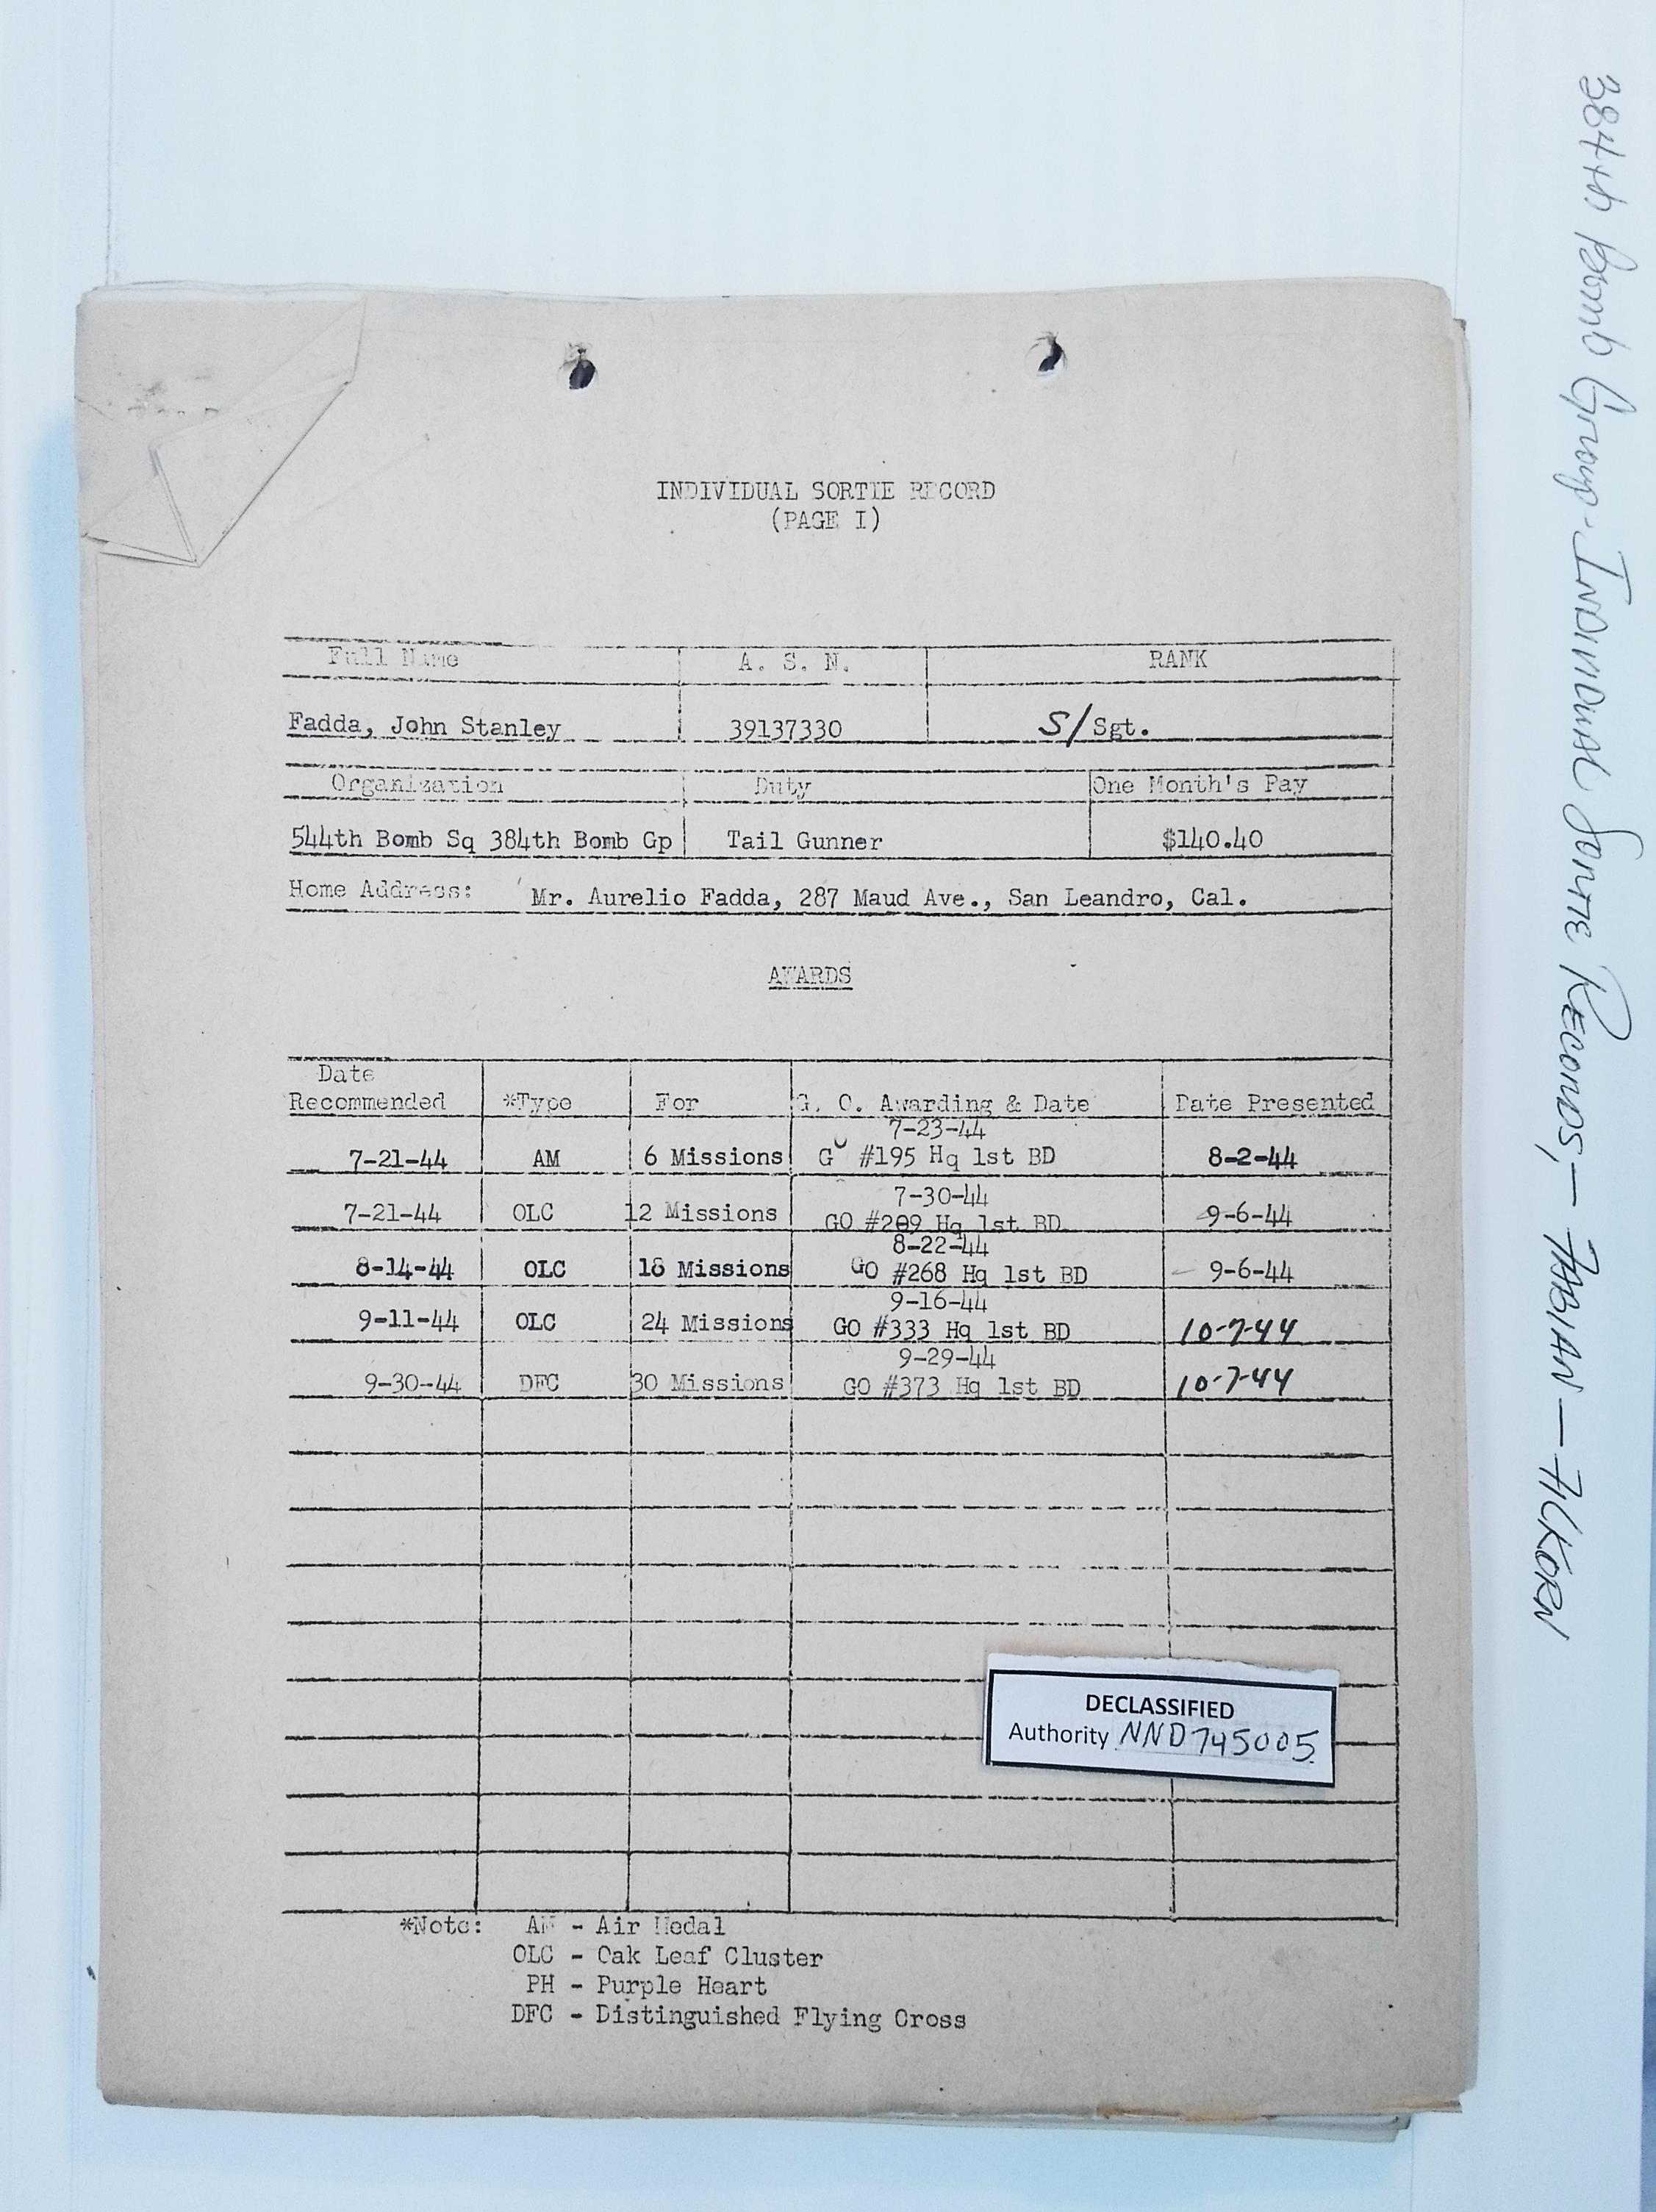 INDIVIDUAL SORTIE RECORD
(PAGE I)
Full Name A. S. N. RANK
Fadda, John Stanley 39137330 S/Sgt.
Organization Duty One Month's Pay
544th Bomb Sq 384th Bomb Gp Tail Gunner $140.40
Home Address: Mr. Aurelio Fadda, 287 Maud Ave., San Leandro, Cal.
AWARDS
Date
Recommended *Type For G. O. Awarding & Date Date Presented
7-23-44
7-21-44 AM 6 Missions GO #195 Hq 1st BD 8-2-44
7-30-44
7-21-44 OLC 12 Missions GO #209 Hq 1st BD 9-6-44
8-22-44
8-14-44 OLC 18 Missions GO #268 Hq 1st BD 9-6-44
9-16-44
9-11-44 OLC 24 Missions GO #333 Hq 1st BD 10-7-44
9-29-44
9-30-44 DFC 30 Missions GO #373 Hq 1st BD 10-7-44
DECLASSIFIED
Authority NND745005
*Note: AM - Air Medal
OLC - Oak Leaf Cluster
PH - Purple Heart
DFC - Distinguished Flying Cross
384th Bomb Group - Individual Sortie Records, - FABIAN - FICKORN